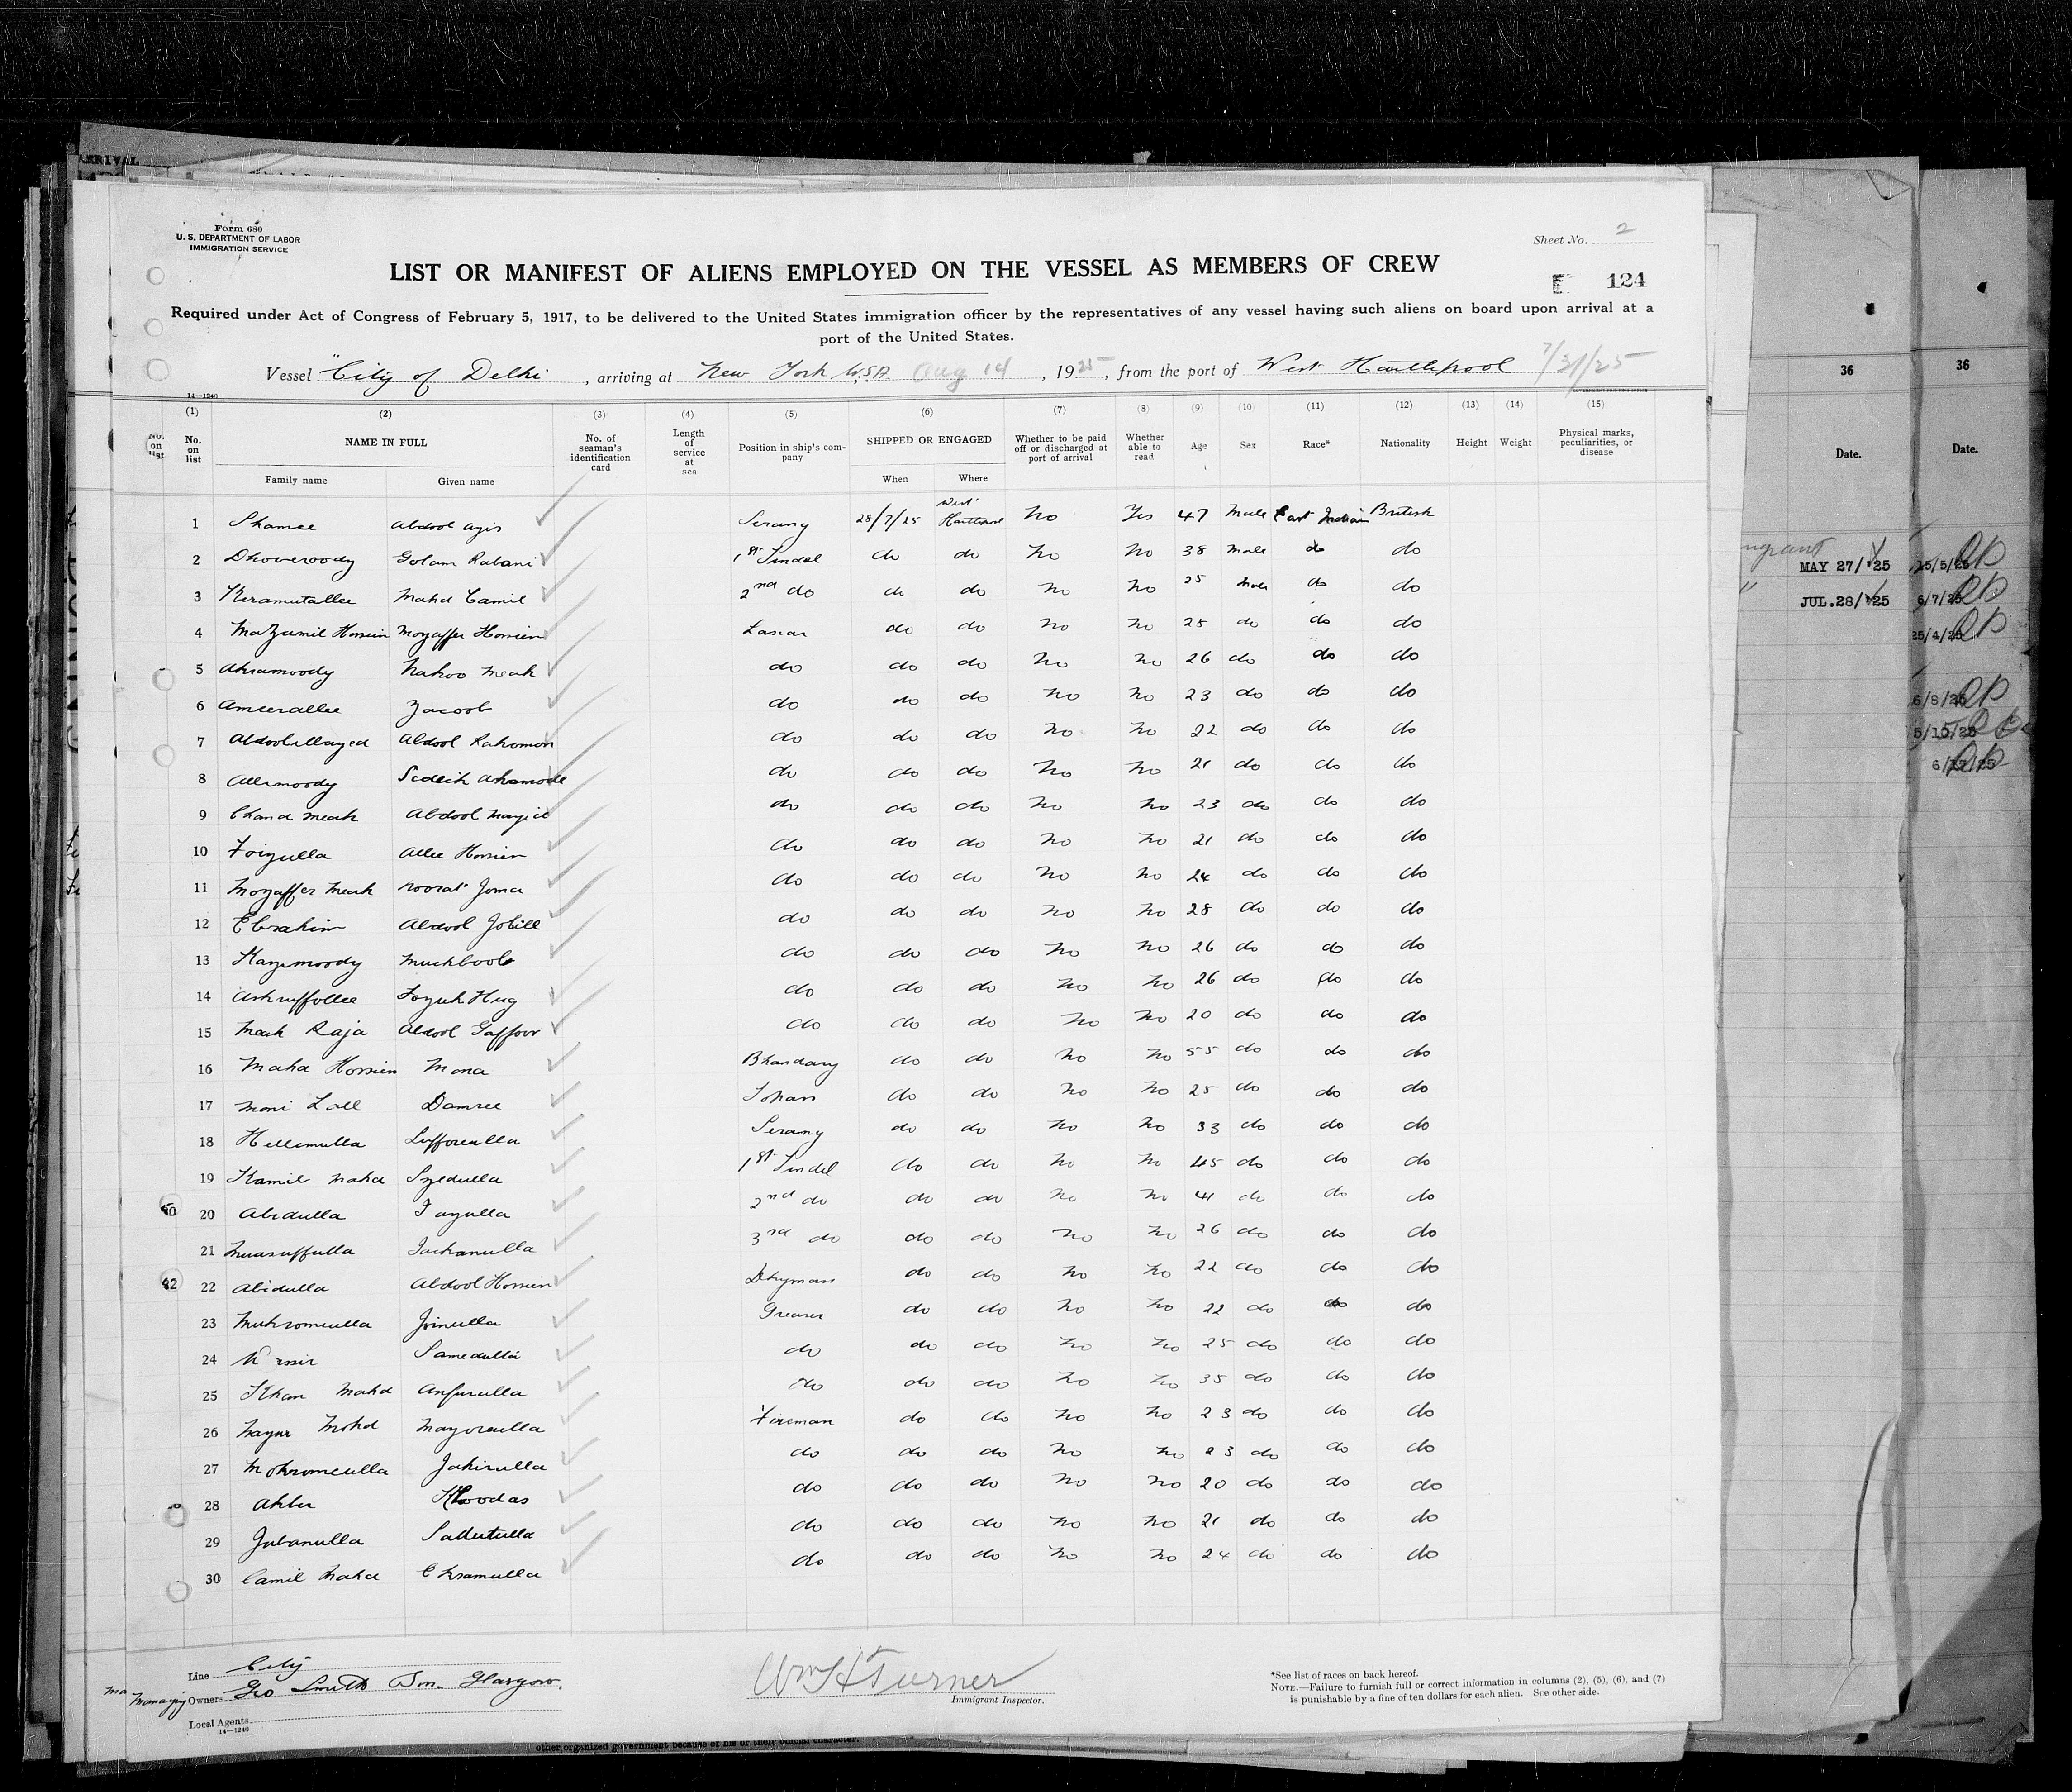 ARRIVAL
Form 680
U. S. DEPARTMENT OF LABOR
IMMIGRATION SERVICE
Sheet No. 2
LIST OR MANIFEST OF ALIENS EMPLOYED ON THE VESSEL AS MEMBERS OF CREW
124
Required under Act of Congress of February 5, 1917, to be delivered to the United States immigration officer by the representatives of any vessel having such aliens on board upon arrival at a
port of the United States.
Vessel "City of Delhi , arriving at New York U.S.A. Aug 14 , 1925, from the port of West Hartlepool 7/31/25
14—1240
(1) (2) (3) (4) (5) (6) (7) (8) (9) (10) (11) (12) (13) (14) (15)
No. on list NAME IN FULL Family name Given name No. of seaman's identification card Length of service at sea Position in ship's company SHIPPED OR ENGAGED When Where Whether to be paid off or discharged at port of arrival Whether able to read Age Sex Race* Nationality Height Weight Physical marks, peculiarities, or disease
1 Shamee Abdool Azis Serang 28/7/25 West Hartlepool No Yes 47 Male East Indian British
2 Dhoveroody Golam Rabani 1st Tindal do do No No 38 Male do do
3 Keramutallee Mahd Camil 2nd do do do No No 25 Male do do
4 Mazamil Hossien Mozaffer Hossien Lascar do do No No 25 do do do
5 Akramoody Nakoo Meah do do do No No 26 do do do
6 Ameerallee Zacoob do do do No No 23 do do do
7 Abdool Rahomon do do do No No 22 do do do
8 Allimoody do do do No No 21 do do do
9 Chand Meah Abdool Mazid do do do No No 23 do do do
10 Foizulla Allee Hossien do do do No No 21 do do do
11 Mozaffer Meah Noorat Joma do do do No No 24 do do do
12 Ebrahim Abdool Jobill do do do No No 28 do do do
13 Kazimoody Muckbool do do do No No 26 do do do
14 Ashruffollee Fozuk Hug do do do No No 26 do do do
15 Meah Raja Abdool Gaffoor do do do No No 20 do do do
16 Mahd Hossien Mona Bhandary do do No No 55 do do do
17 Moni Lall Damree Topan do do No No 25 do do do
18 Hellimulla Luffoorulla Serang do do No No 33 do do do
19 Kamil Mahd Syedulla 1st Tindel do do No No 45 do do do
20 Abidulla Fayulla 2nd do do do No No 41 do do do
21 3rd do do do No No 26 do do do
22 Abidulla Abdool Hossien do do No No 22 do do do
23 Mukromeulla Joinulla Greaser do do No No 22 do do do
24 Samedulla do do do No No 25 do do do
25 Khan Mahd Anfurulla do do do No No 35 do do do
26 Nazur Mohd Mayoreulla Fireman do do No No 23 do do do
27 Mokromeulla Jahirulla do do do No No 23 do do do
28 Akber Khoodas do do do No No 20 do do do
29 Jubanulla Sallutulla do do do No No 21 do do do
30 Camil Mahd Ekramulla do do do No No 24 do do do
Line City
Managing Owners Geo Smith Son. Glasgow.
Local Agents
14—1240
Wm H Turner
Immigrant Inspector.
*See list of races on back hereof.
NOTE.—Failure to furnish full or correct information in columns (2), (5), (6), and (7)
is punishable by a fine of ten dollars for each alien. See other side.
other organized government because of his or their official character.
36 36
Date. Date.
MAY 27/25 15/5/25
JUL.28/25 6/7/25
25/4/25